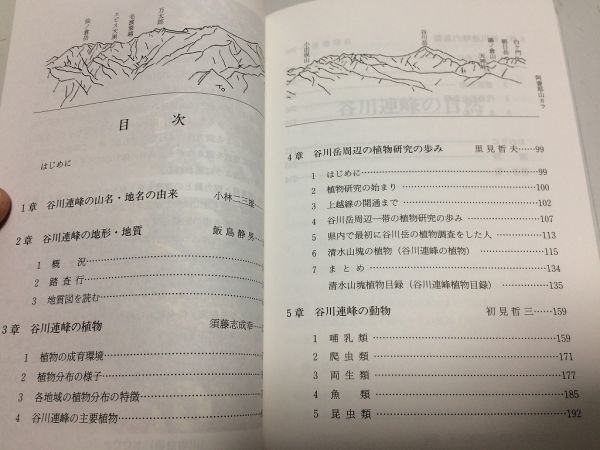 仙ノ倉岳
エビス大黒
毛渡乗越
万太郎
目 次
はじめに
1章 谷川連峰の山名・地名の由来 小林二三雄
2章 谷川連峰の地形・地質 飯島静男
1 概 況
2 踏査行
3 地質図を読む
3章 谷川連峰の植物 須藤志成幸
1 植物の成育環境
2 植物分布の様子
3 各地域の植物分布の特徴
4 谷川連峰の主要植物
小出俣山
谷川岳
一ノ倉山
天神山
朝日岳
白ヶ門
阿能川山カラ
4章 谷川岳周辺の植物研究の歩み 里見哲夫……99
1 はじめに……99
2 植物研究の始まり……100
3 上越線の開通まで……102
4 谷川岳周辺一帯の植物研究の歩み……107
5 県内で最初に谷川岳の植物調査をした人……113
6 清水山塊の植物（谷川連峰の植物）……115
7 まとめ……134
清水山塊植物目録（谷川連峰植物目録）……135
5章 谷川連峰の動物 初見哲三……159
1 哺乳類……159
2 爬虫類……171
3 両生類……177
4 魚 類……185
5 昆虫類……192